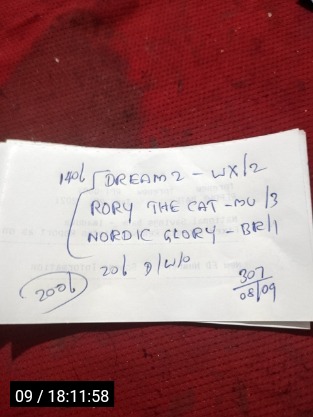 140/- DREAM 2 - WX/2
RORY THE CAT - MU/3
NORDIC GLORY - BR/1
20/- D/W/O
200/-
307
08/09
09 / 18:11:58